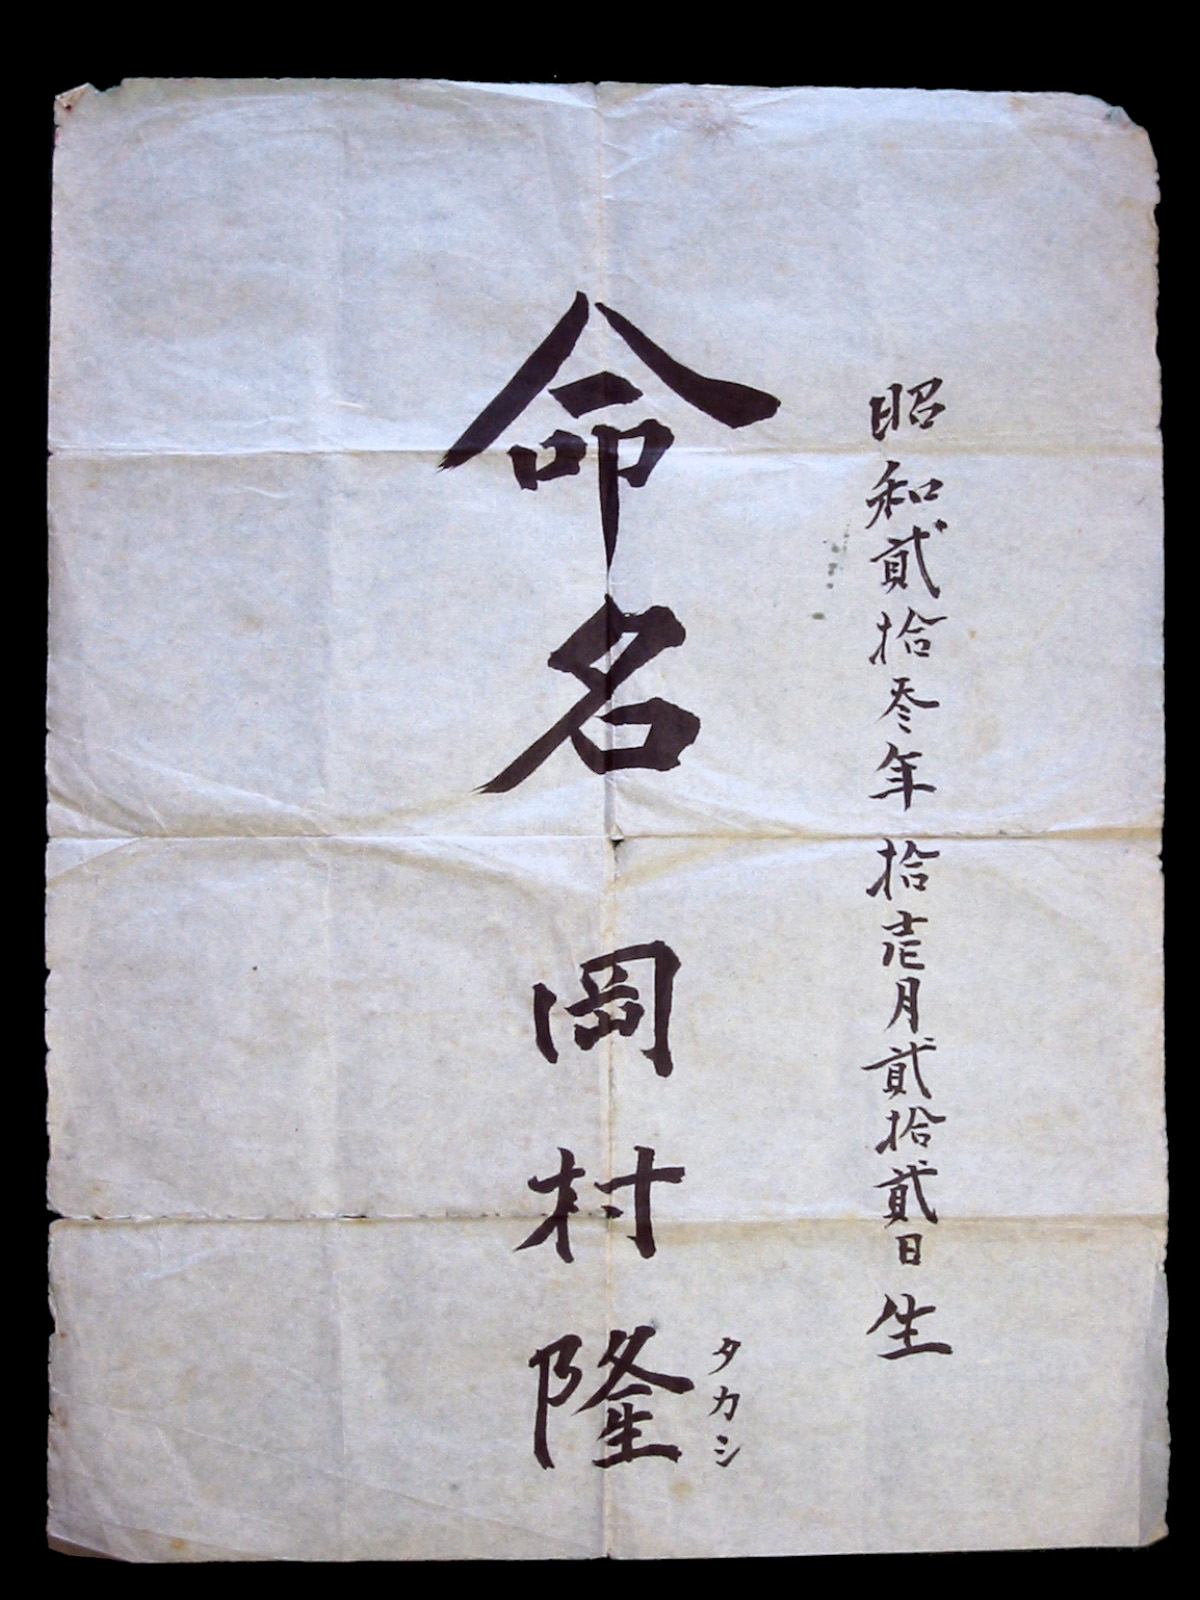 昭和貳拾叁年拾壱月貳拾貳日生
命名 岡村隆
タカシ